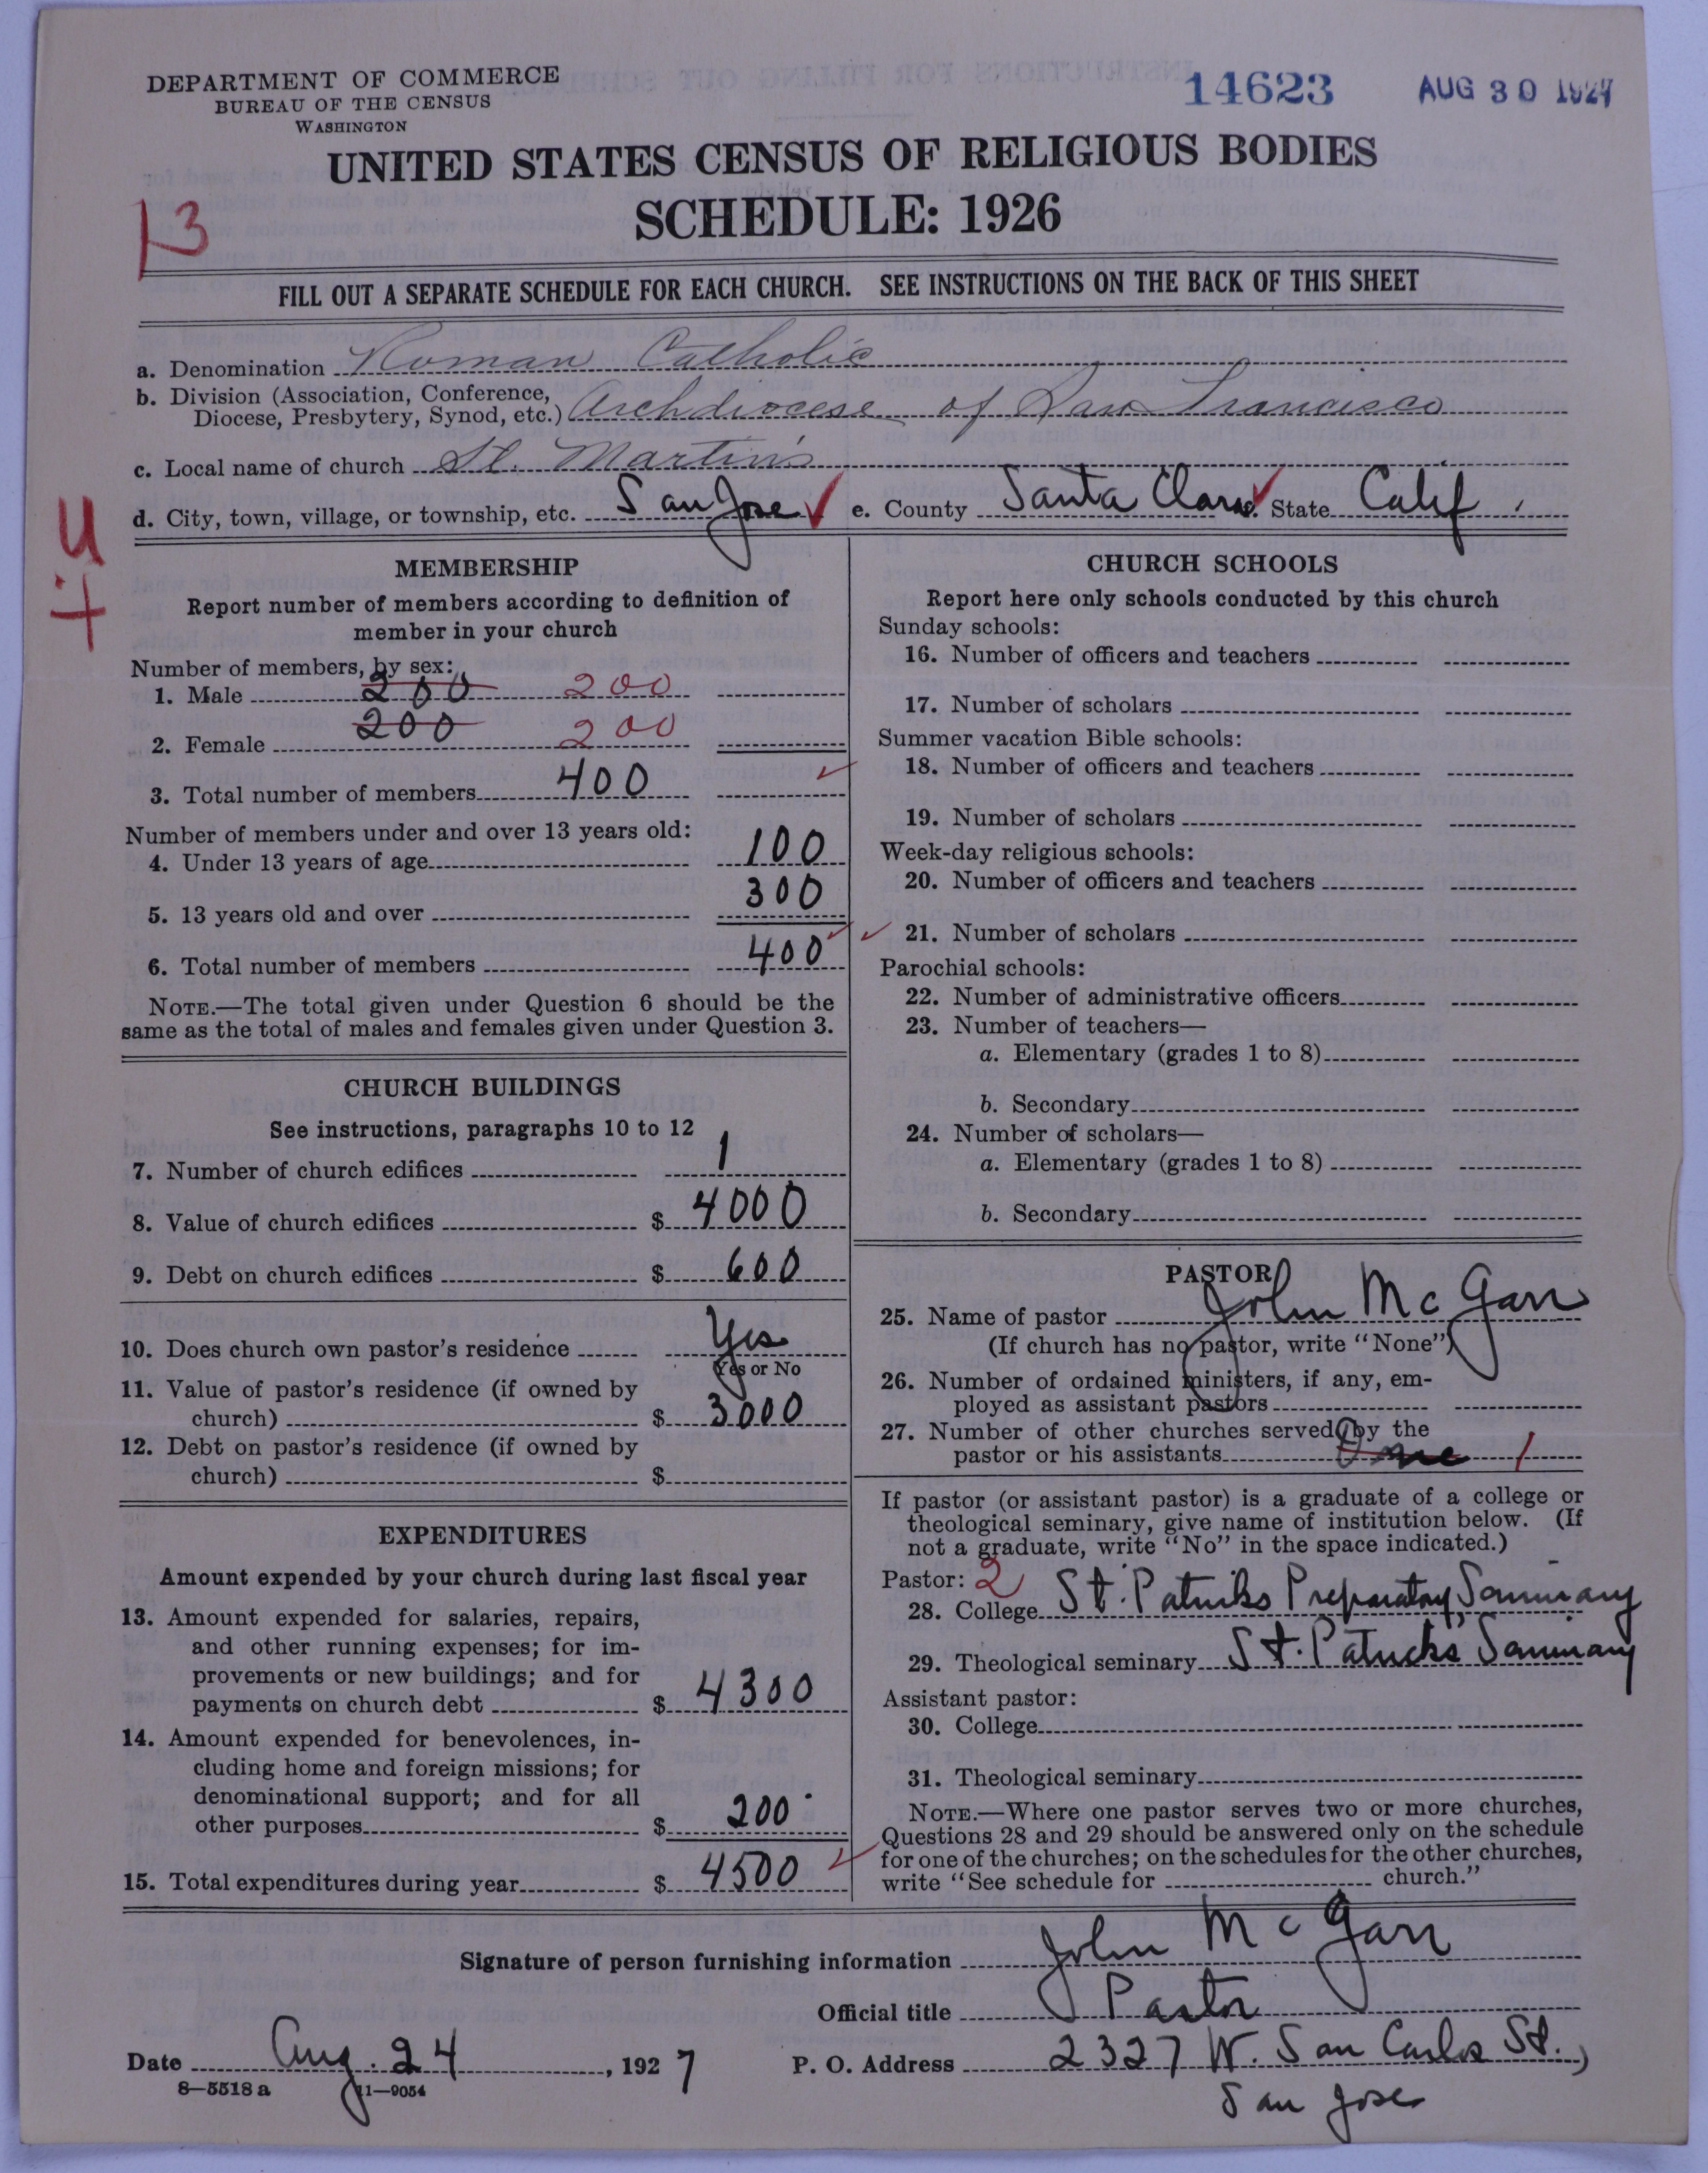 DEPARTMENT OF COMMERCE
BUREAU OF THE CENSUS
WASHINGTON
14623
AUG 30 1927
UNITED STATES CENSUS OF RELIGIOUS BODIES
SCHEDULE: 1926
13
FILL OUT A SEPARATE SCHEDULE FOR EACH CHURCH. SEE INSTRUCTIONS ON THE BACK OF THIS SHEET
a. Denomination Roman Catholic
b. Division (Association, Conference,
Diocese, Presbytery, Synod, etc.) Archdiocese of San Francisco
c. Local name of church St. Martin's
d. City, town, village, or township, etc. San Jose e. County Santa Clara State Calif.
MEMBERSHIP
Report number of members according to definition of
member in your church
Number of members, by sex:
1. Male 200 200
2. Female 200 200
3. Total number of members 400
Number of members under and over 13 years old:
4. Under 13 years of age 100
5. 13 years old and over 300
6. Total number of members 400
NOTE.—The total given under Question 6 should be the
same as the total of males and females given under Question 3.
CHURCH BUILDINGS
See instructions, paragraphs 10 to 12
7. Number of church edifices 1
8. Value of church edifices $ 4000
9. Debt on church edifices $ 600
10. Does church own pastor's residence Yes
Yes or No
11. Value of pastor's residence (if owned by
church) $ 3000
12. Debt on pastor's residence (if owned by
church) $
EXPENDITURES
Amount expended by your church during last fiscal year
13. Amount expended for salaries, repairs,
and other running expenses; for im-
provements or new buildings; and for
payments on church debt $ 4300
14. Amount expended for benevolences, in-
cluding home and foreign missions; for
denominational support; and for all
other purposes $ 200
15. Total expenditures during year $ 4500
CHURCH SCHOOLS
Report here only schools conducted by this church
Sunday schools:
16. Number of officers and teachers
17. Number of scholars
Summer vacation Bible schools:
18. Number of officers and teachers
19. Number of scholars
Week-day religious schools:
20. Number of officers and teachers
21. Number of scholars
Parochial schools:
22. Number of administrative officers
23. Number of teachers—
a. Elementary (grades 1 to 8)
b. Secondary
24. Number of scholars—
a. Elementary (grades 1 to 8)
b. Secondary
PASTOR
25. Name of pastor John McGarr
(If church has no pastor, write "None")
26. Number of ordained ministers, if any, em-
ployed as assistant pastors
27. Number of other churches served by the
pastor or his assistants One 1
If pastor (or assistant pastor) is a graduate of a college or
theological seminary, give name of institution below. (If
not a graduate, write "No" in the space indicated.)
Pastor: 2
28. College St. Patricks Preparatory Seminary
29. Theological seminary St. Patricks Seminary
Assistant pastor:
30. College
31. Theological seminary
NOTE.—Where one pastor serves two or more churches,
Questions 28 and 29 should be answered only on the schedule
for one of the churches; on the schedules for the other churches,
write "See schedule for church."
Signature of person furnishing information John McGarr
Official title Pastor
Date Aug. 24, 1927 P. O. Address 2327 W. San Carlos St.,
8—5518 a 11—9054
San Jose